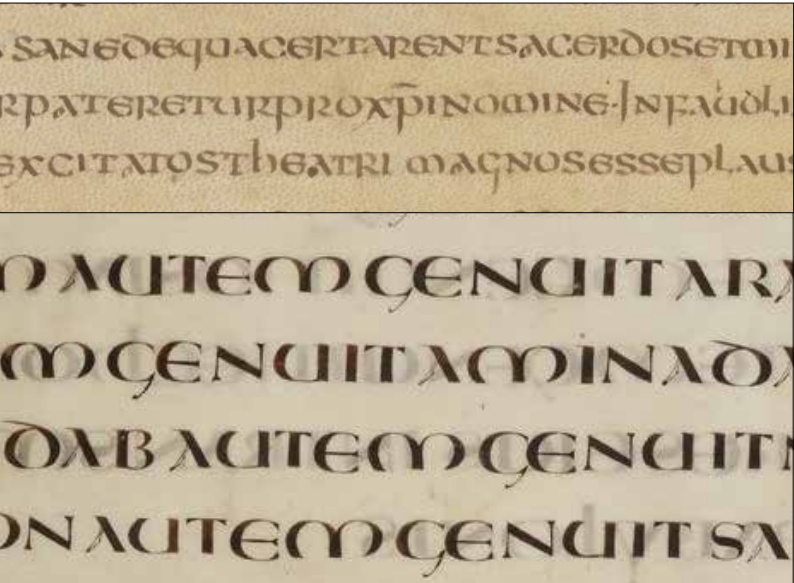 SANEDEQUACERTARENTSACERDOSETMI
RPATERETURPROXP̄INOMINE·IN
EXCITATOSTHEATRI MAGNOSESSEPLAUS
M AUTEM GENUIT ARA
M GENUIT AMINADA
DAB AUTEM GENUIT N
ON AUTEM GENUIT SA